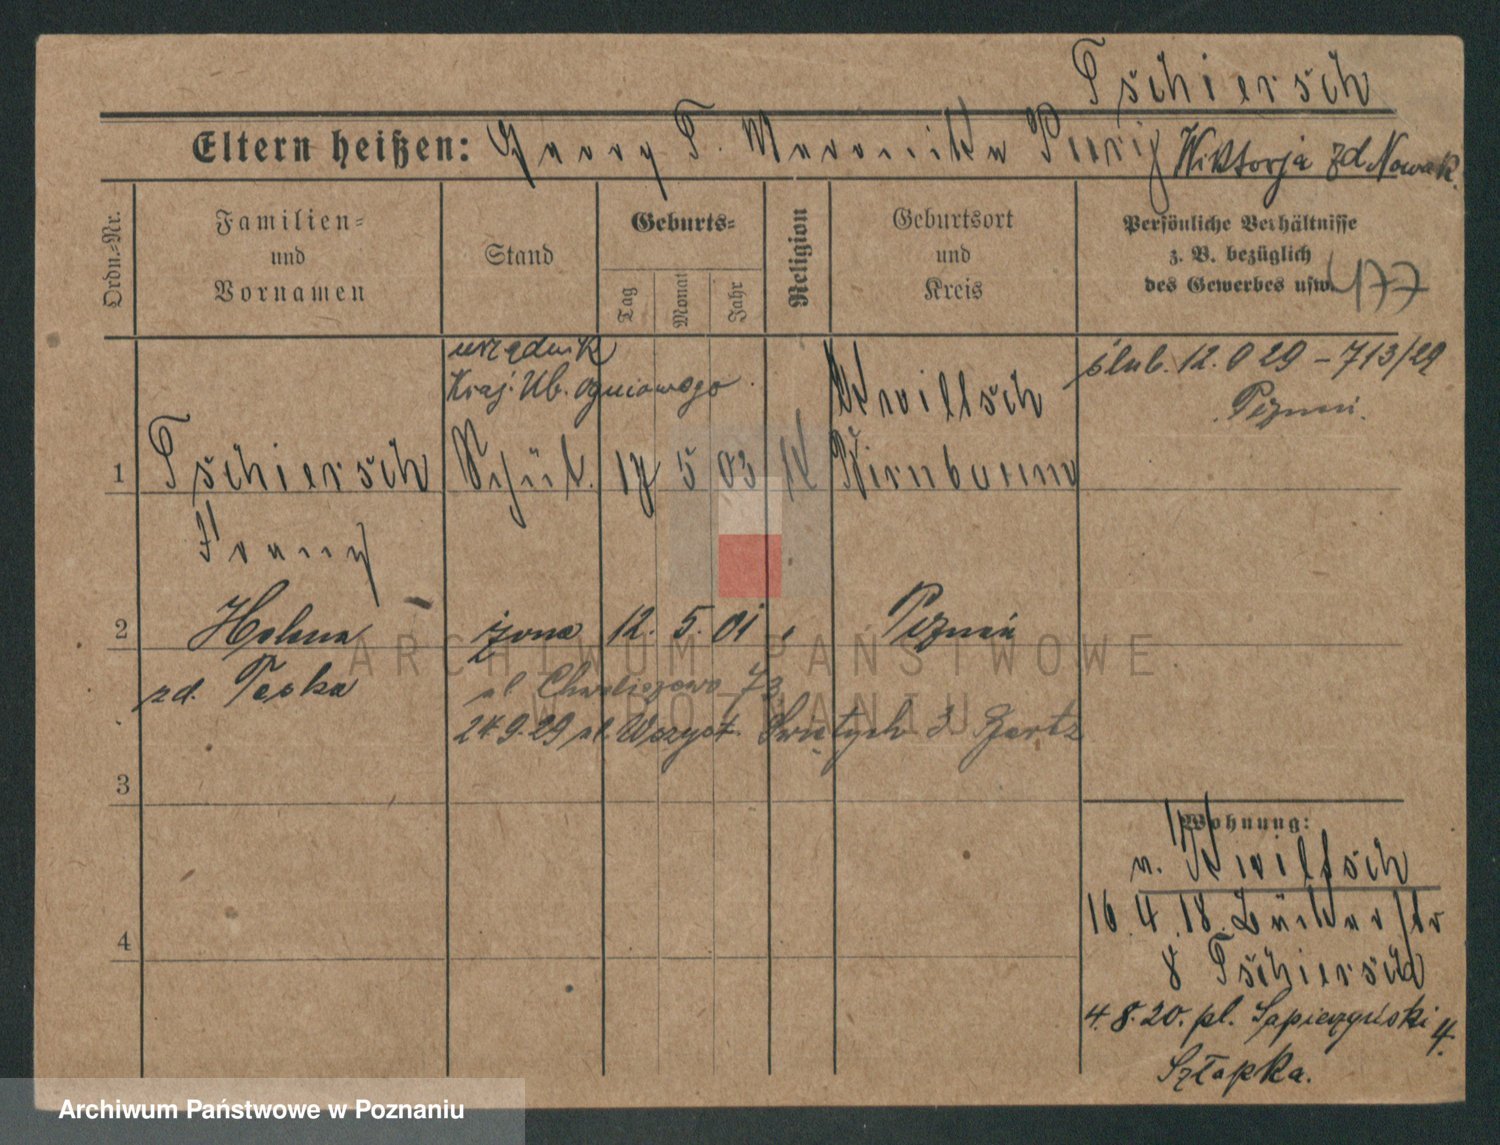 Tschiersch
Eltern heißen: Georg T. Veronika Wiktorja zd Nowak.
Ordn.-Nr.
Familien- und Vornamen
Stand
Geburts-
Tag
Monat
Jahr
Religion
Geburtsort und Kreis
Persönliche Verhältnisse z. B. bezüglich des Gewerbes usw.
477
urzędnik
Kraj. Ub. ogniowego
ślub. 12. 29 – 713/29
Poznań.
Kwiltsch
1 Tschiersch Schül. 17 5 03 k Birnbaum
Franz
2 Helena żona 12. 5. 01 " Poznań
zd. Teska
ul Chwaliszewo 73
24.9.29 ul. Wszyst. Świętych 3. Gartz
3
4
Wohnung:
v. Kwiltsch
16.4.18. Bäckerstr
8 Tschiersch
4.8.20. pl. Sapieżyński 4.
Szłapka.
ARCHIWUM PAŃSTWOWE
W POZNANIU
Archiwum Państwowe w Poznaniu